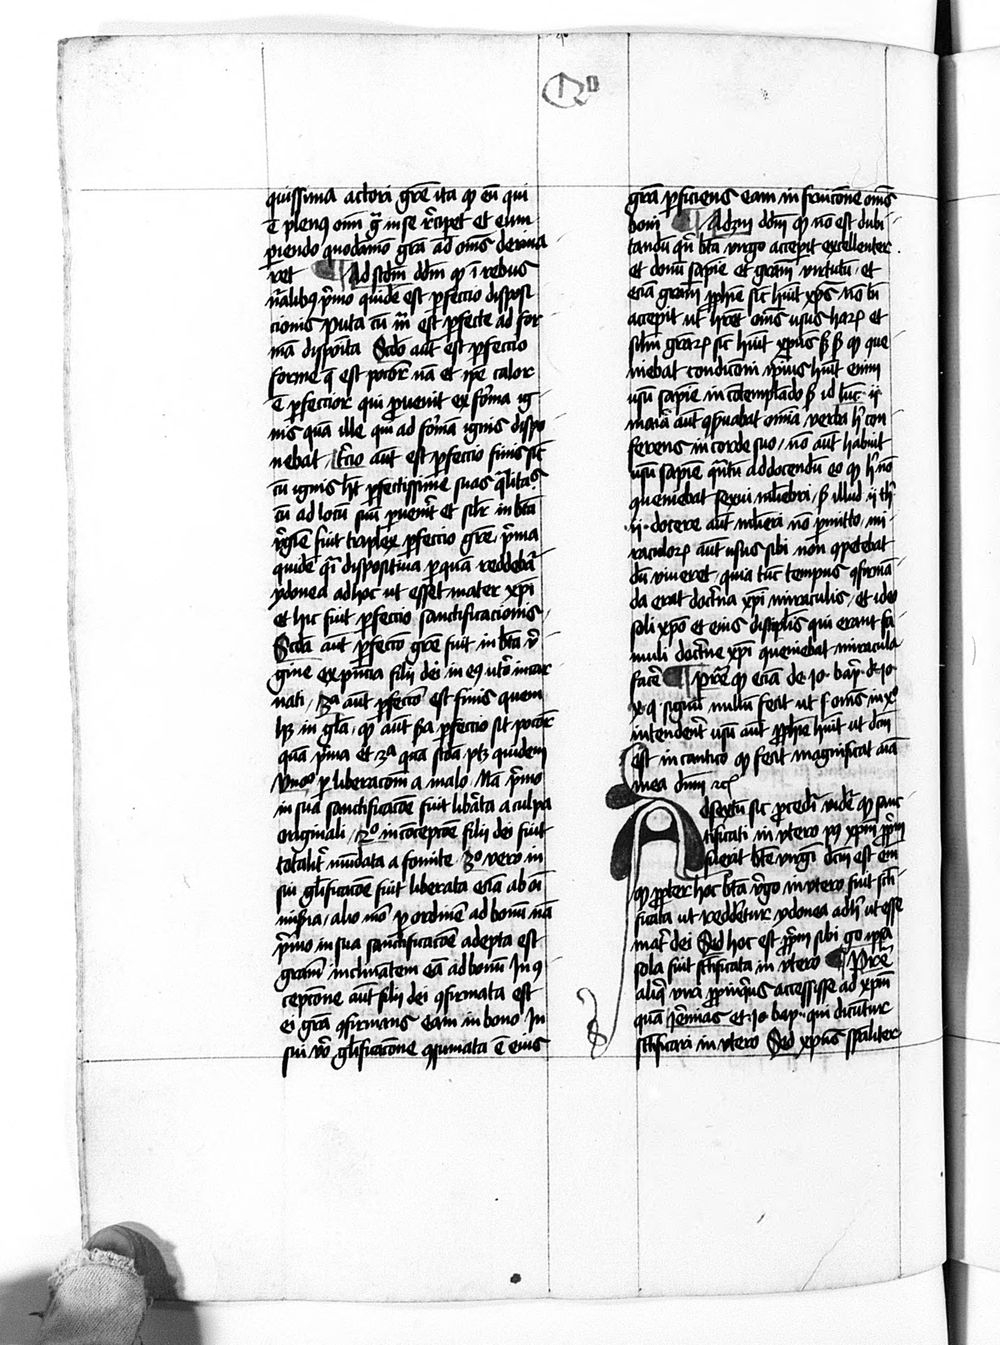 Q II
quissima actori grē ita ꝙ eū qui
ē plenꝰ omī gᷓ in se r̄ciꝑet et eum
pariendo quodāmo grā ad om̄s deriua
ret ¶ Ad scdm̄ ddm̄ ꝙ ī rebus
nālibꝰ p̄mo quidē est ꝑfectio disposi
cionis puta cū mā est ꝑfecte ad for
mā disposita Scdo aūt est ꝑfectio
forme q̄ est pocior nā et ipe calor
ē ꝑfectior qui ꝓuenit ex forma ig
nis quā ille qui ad formā ignis dispo
nebat / tercio aūt est ꝑfectio finis sic̄
cū ignis hꝫ ꝑfectissime suas q̄litates
cū ad locū suū ꝓuenerit et silr in btā
v̄gie fuit triplex ꝑfectio grē p̄ma
quidē q̄i dispositiua ꝑ quā reddebat̄
ydonea ad hoc ut esset mater xp̄i
et hic fuit ꝑfectio sanctificacionis
Scda aūt ꝑfectio grē fuit in btā v̄
gine ex p̄ncia filii dei in eꝰ utero incar
nati / 3ᵃ aūt ꝑfectio est finis quem
hꝫ in gla / ꝙ aūt 2ᵃ ꝑfectio sit pocior
quā p̄ma et 3ᵃ quā scda ptꝫ quidem
vnoº ꝑ liberacom̄ a malo Nā p̄mo
in sua sanctificacōe fuit libāta a culpa
originali / 2º in cōcepcōe filii dei fuit
totalit̄ mūdata a fomite / 3º vero in
sui glificacōe fuit liberata ecia ab oī
miseria / alio mō ꝑ ordinē ad bonū nā
p̄mo in sua sanctificacōe adepta est
gram̄ inclinātem eā ad bonū In ꝯ
cepcōne aūt filii dei ꝯfirmata est
ei grā ꝯfirmans eam in bono In
sui vº glificacōne ꝯsumata ē eius
grā ꝑficiens eam in fruicōne om̄s
boni ¶ Ad 3m ddm̄ ꝙ nō est dubi
tandū qn̄ btā virgo acceꝑit excellenter
et donū sapiē et gram̄ virtutū / et
ecia gram̄ ꝓphie sic̄ huit xp̄s nō tn̄
accepit ut hret om̄s usus harꝫ et
silm̄ grarꝫ sic huit xpūs ẞ ꝙ que
niebat condicioni ip̄ius huit enim
usū sapiē in cōtemplādo ẞ id luc ii
maria aūt ꝯseruabat omīa verba h̄ con
ferens in corde suo / nō aūt habuit
usū sapiē q̄ntū ad docendū eo ꝙ h̄ nō
queniebat sexui mliebri / ẞ illud ii th̄
ii · docere aūt mlieri nō ꝑmitto / mi
raculorꝫ aūt usus sibi non ꝯpetebat
dū viueret / quia tūc tempus ꝯfirmā
da erat doctrina xp̄i miraculis / et ideo
soli xpō et eius discipulis qui erant fa
muli doctrīe xp̄i queniebat miracula
facer̄ ¶ p̄tē ꝙ ecia de io · bap̄ · dr̄ io
x · ꝙ signū nullū fecit ut s om̄s in xº
intenderēt usū aūt ꝓphie huit ut dcm̄
est in cantico ꝙ fecit magnificat aīa
mea dnm̄ ꝛc̄
Ad sextū sic ꝓcedr̄ vidr̄ ꝙ sanc
tificati in vtero pꝰ xpm̄ ꝓpm̄
fuerit btē virgī dcm̄ est em̄
ꝙ ꝓpter hoc btā v̄go in vtero fuit scti
ficata ut redderetur ydonea ad h̄ ut esse
mat̄ dei Sed hoc est ꝓpm̄ sibi go ipa
sola fuit sctificata in vtero ¶ Pretē
aliqͥ viri ꝓpinqͥus accessisse ad xpm̄
quā iermias et io bap̄ · qui dicūntur
sctificari in vtero Sed xpūs spāliter